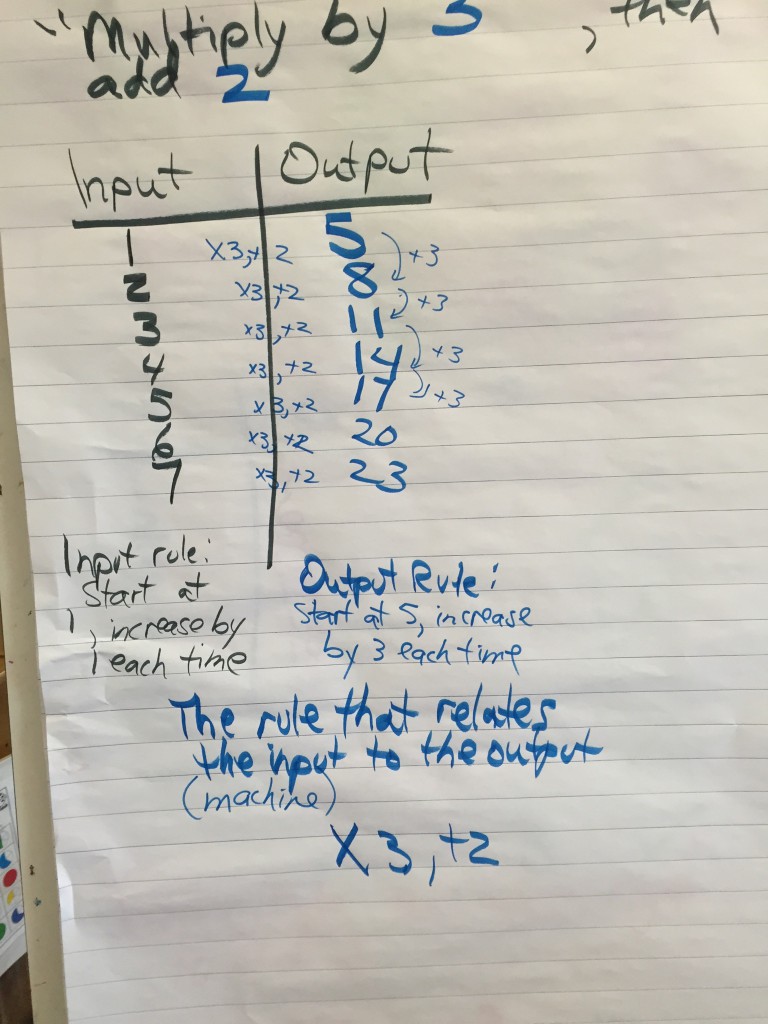 "Multiply by 3, then
add 2
Input Output
1 x3,+2 5 +3
2 x3,+2 8 +3
3 x3,+2 11 +3
4 x3,+2 14 +3
5 x3,+2 17
6 x3,+2 20
7 x3,+2 23
Input rule:
Start at
1, increase by
1 each time
Output Rule:
Start at 5, increase
by 3 each time
The rule that relates
the input to the output
(machine)
x3,+2